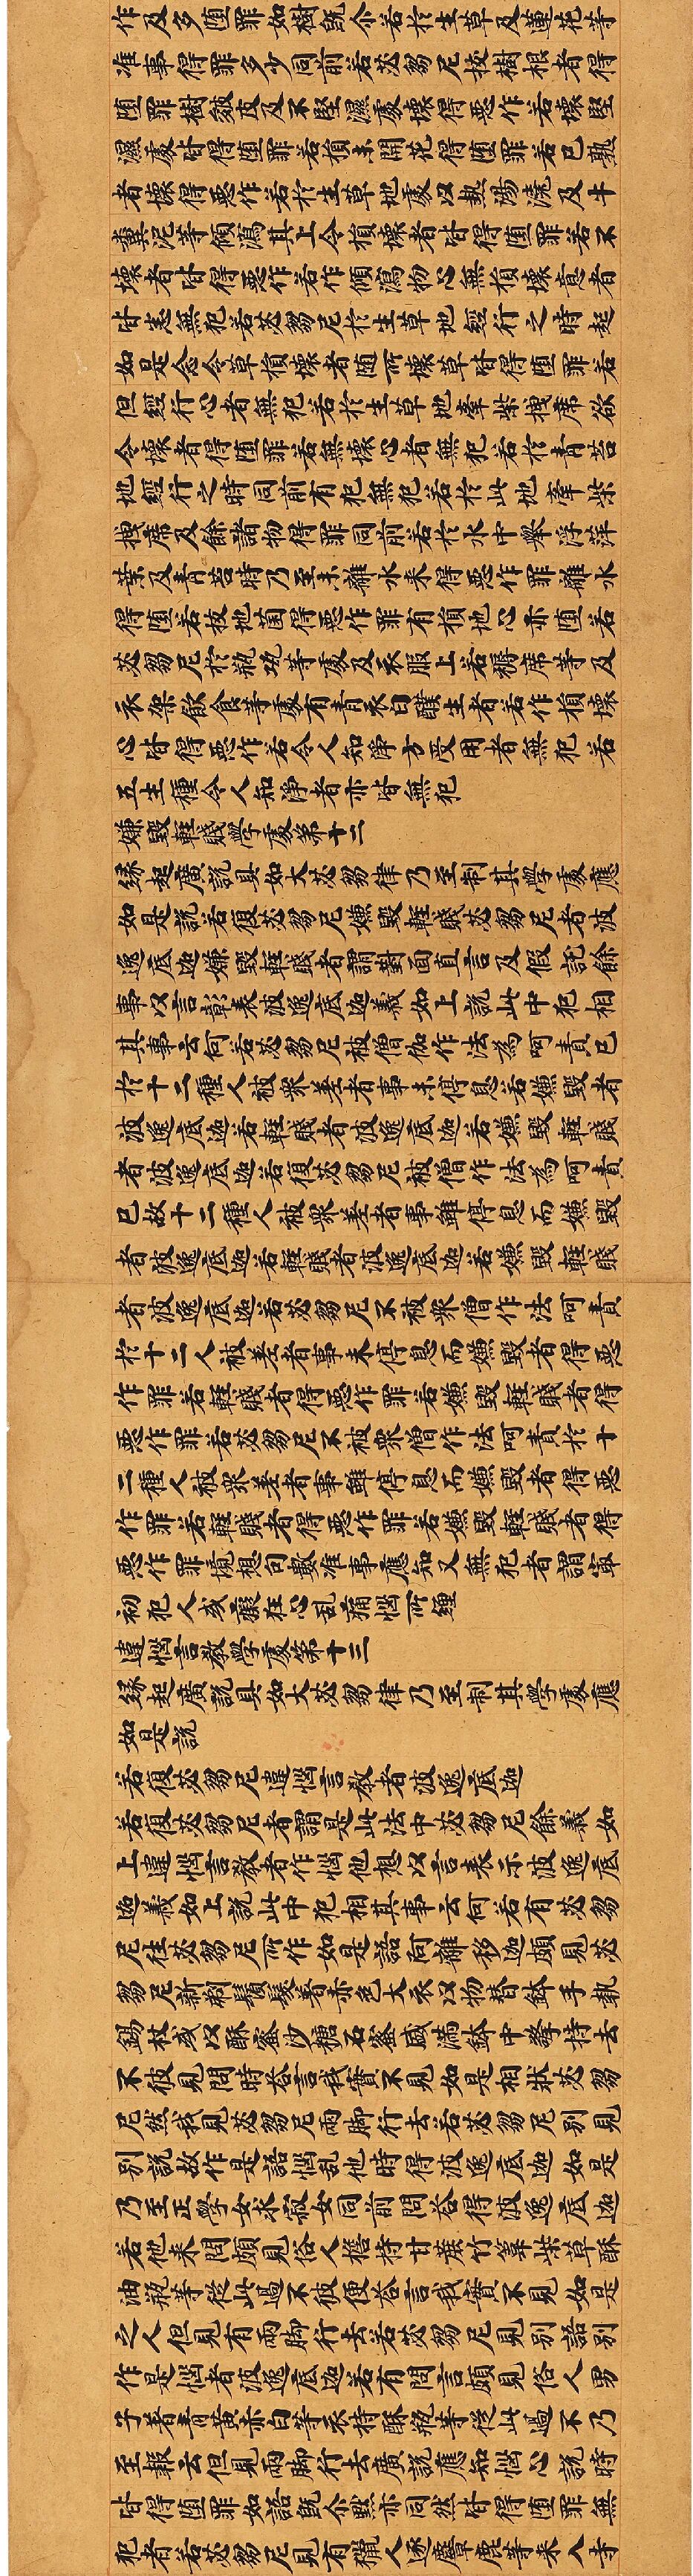 作及多墮罪如樹既尒若於生草及蓮花等
准事得罪多少同前若苾芻尼拔樹根者得
墮罪樹皴皮及不堅濕處壞得惡作若壞堅
濕處皆得墮罪若損未開花得墮罪若已熟
者壞得惡作若於生草地處以熱湯澆及牛
糞泥等傾瀉其上令損壞者皆得墮罪若不
壞者皆得惡作若作傾瀉物心無損壞意者
皆悉無犯若苾芻尼於生草地經行之時起
如是念令草損壞者隨所壞草皆得墮罪若
但經行心者無犯若於生草地牽柴拽席欲
令壞者得墮罪若無壞心者無犯若於青苔
地經行之時同前有犯無犯若於此地牽柴
拽席及餘諸物得罪同前若於水中舉浮萍
葉及青苔時乃至未離水來得惡作罪離水
得墮若拔地菌得惡作罪有損地心亦墮若
苾芻尼於瓶瓨等處及衣服上若褥席等及
衣架飲食等處有青衣白醭生者若作損壞
心皆得惡作若令人知淨方受用者無犯若
五生種令人知淨者亦皆無犯
嫌毀輕賤學處第十二
緣起廣說具如大苾芻律乃至制其學處應
如是說若復苾芻尼嫌毀輕賤苾芻尼者波
逸底迦嫌毀輕賤者謂對面直言及假託餘
事以言彰表波逸底迦義如上說此中犯相
其事云何若苾芻尼被僧伽作法為呵責已
於十二種人被眾差者事未停息若嫌毀者
波逸底迦若輕賤者波逸底迦若嫌毀輕賤
者波逸底迦若復苾芻尼被僧作法為呵責
已故十二種人被眾差者事雖停息而嫌毀
者波逸底迦若輕賤者波逸底迦若嫌毀輕賤
者波逸底迦若苾芻尼不被眾僧作法呵責
於十二人被差者事未停息而嫌毀者得惡
作罪若輕賤者得惡作罪若嫌毀輕賤者得
惡作罪若苾芻尼不被眾僧作法呵責於十
二種人被眾差者事雖停息而嫌毀者得惡
作罪若輕賤者得惡作罪若嫌毀輕賤者得
惡作罪境想句數准事應知又無犯者謂冣
初犯人或癡狂心亂痛惱所纏
違惱言教學處第十三
緣起廣說具如大苾芻律乃至制其學處應
如是說
若復苾芻尼違惱言教者波逸底迦
若復苾芻尼者謂是此法中苾芻尼餘義如
上違惱言教者作惱他想以言表示波逸底
迦義如上說此中犯相其事云何若有苾芻
尼往苾芻尼所作如是語阿離移迦頗見苾
芻尼新剃鬚髮著赤色大衣以物替鉢手執
錫杖或以酥蜜沙糖石蜜盛滿鉢中擎持去
不彼見問時荅言我實不見如是相狀苾芻
尼然我見苾芻尼兩脚行去若苾芻尼別見
別說故作是語惱乱他時得波逸底迦如是
乃至正學女求寂女同前問荅得波逸底迦
若他來問頗見俗人擔持甘蔗竹葦柴草酥
油瓶等從此過不彼便荅言我實不見如是
之人但見有兩脚行去若苾芻尼見別語別
作是惱者波逸底迦若有問言頗見俗人男
子著青黃赤白等衣持酥瓶等從此過不乃
至報云但見兩脚行去廣說應知惱心說時
皆得墮罪如語既尒默亦同然皆得墮罪無
犯者若苾芻尼見有獵人逐麞鹿等來入寺